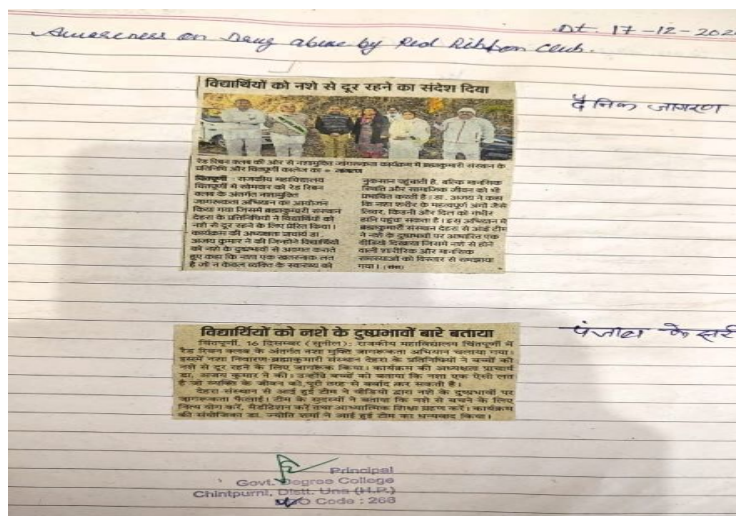 Dt. 17-12-202
Awareness on Drug abuse by Red Ribbon Club.
दैनिक जागरण
विद्यार्थियों को नशे से दूर रहने का संदेश दिया
रेड रिबन क्लब की ओर से नशामुक्ति जागरूकता कार्यक्रम में ब्रह्माकुमारी संस्थान के
प्रतिनिधि और चिंतपूर्णी कालेज का • जागरण
चिंतपूर्णी : राजकीय महाविद्यालय
चिंतपूर्णी में सोमवार को रेड रिबन
क्लब के अंतर्गत नशामुक्ति
जागरूकता अभियान का आयोजन
किया गया जिसमें ब्रह्माकुमारी संस्थान
देहरा के प्रतिनिधियों ने विद्यार्थियों को
नशे से दूर रहने के लिए प्रेरित किया।
कार्यक्रम की अध्यक्षता प्राचार्य डा.
अजय कुमार ने की जिन्होंने विद्यार्थियों
को नशे के दुष्प्रभावों से अवगत कराते
हुए कहा कि नशा एक खतरनाक लत
है जो न केवल व्यक्ति के स्वास्थ्य को
नुकसान पहुंचाती है, बल्कि मानसिक
स्थिति और सामाजिक जीवन को भी
प्रभावित करती है। डा. अजय ने कहा
कि नशा शरीर के महत्वपूर्ण अंगों जैसे
लिवर, किडनी और दिल को गंभीर
हानि पहुंचा सकता है। इस अभियान में
ब्रह्माकुमारी संस्थान देहरा से आई टीम
ने नशे के दुष्प्रभावों पर आधारित एक
वीडियो दिखाया जिसमें नशे से होने
वाली शारीरिक और मानसिक
समस्याओं को विस्तार से समझाया
गया। (संस)
पंजाब केसरी
विद्यार्थियों को नशे के दुष्प्रभावों बारे बताया
चिंतपूर्णी, 16 दिसम्बर (सुनील): राजकीय महाविद्यालय चिंतपूर्णी में
रैड रिबन क्लब के अंतर्गत नशा मुक्ति जागरूकता अभियान चलाया गया।
इसमें नशा निवारण-ब्रह्माकुमारी संस्थान देहरा के प्रतिनिधियों ने बच्चों को
नशे से दूर रहने के लिए जागरूक किया। कार्यक्रम की अध्यक्षता प्राचार्य
डा. अजय कुमार ने की। उन्होंने बच्चों को बताया कि नशा एक ऐसी लत
है जो व्यक्ति के जीवन को पूरी तरह से बर्बाद कर सकती है।
देहरा संस्थान से आई हुई टीम ने वीडियो द्वारा नशे के दुष्प्रभावों पर
जागरूकता फैलाई। टीम के सदस्यों ने बताया कि नशे से बचने के लिए
नित्य योग करें, मैडीटेशन करें तथा आध्यात्मिक शिक्षा ग्रहण करें। कार्यक्रम
की संयोजिका डा. ज्योति शर्मा ने आई हुई टीम का धन्यवाद किया।
Principal
Govt. Degree College
Chintpurni, Distt. Una (H.P.)
Code : 268